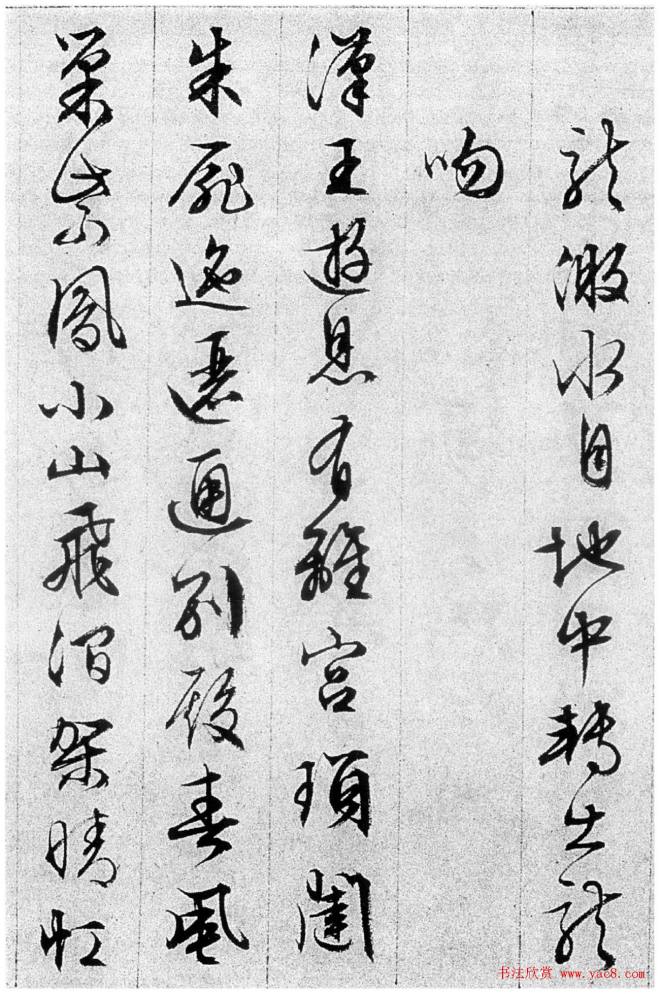 龍激水自地中轉出龍
吻
漢王遊息有離宮瑣闥
朱扉迤邐通別殿春風
巢紫鳳小山飛澗架晴虹
书法欣赏 www.yac8.com